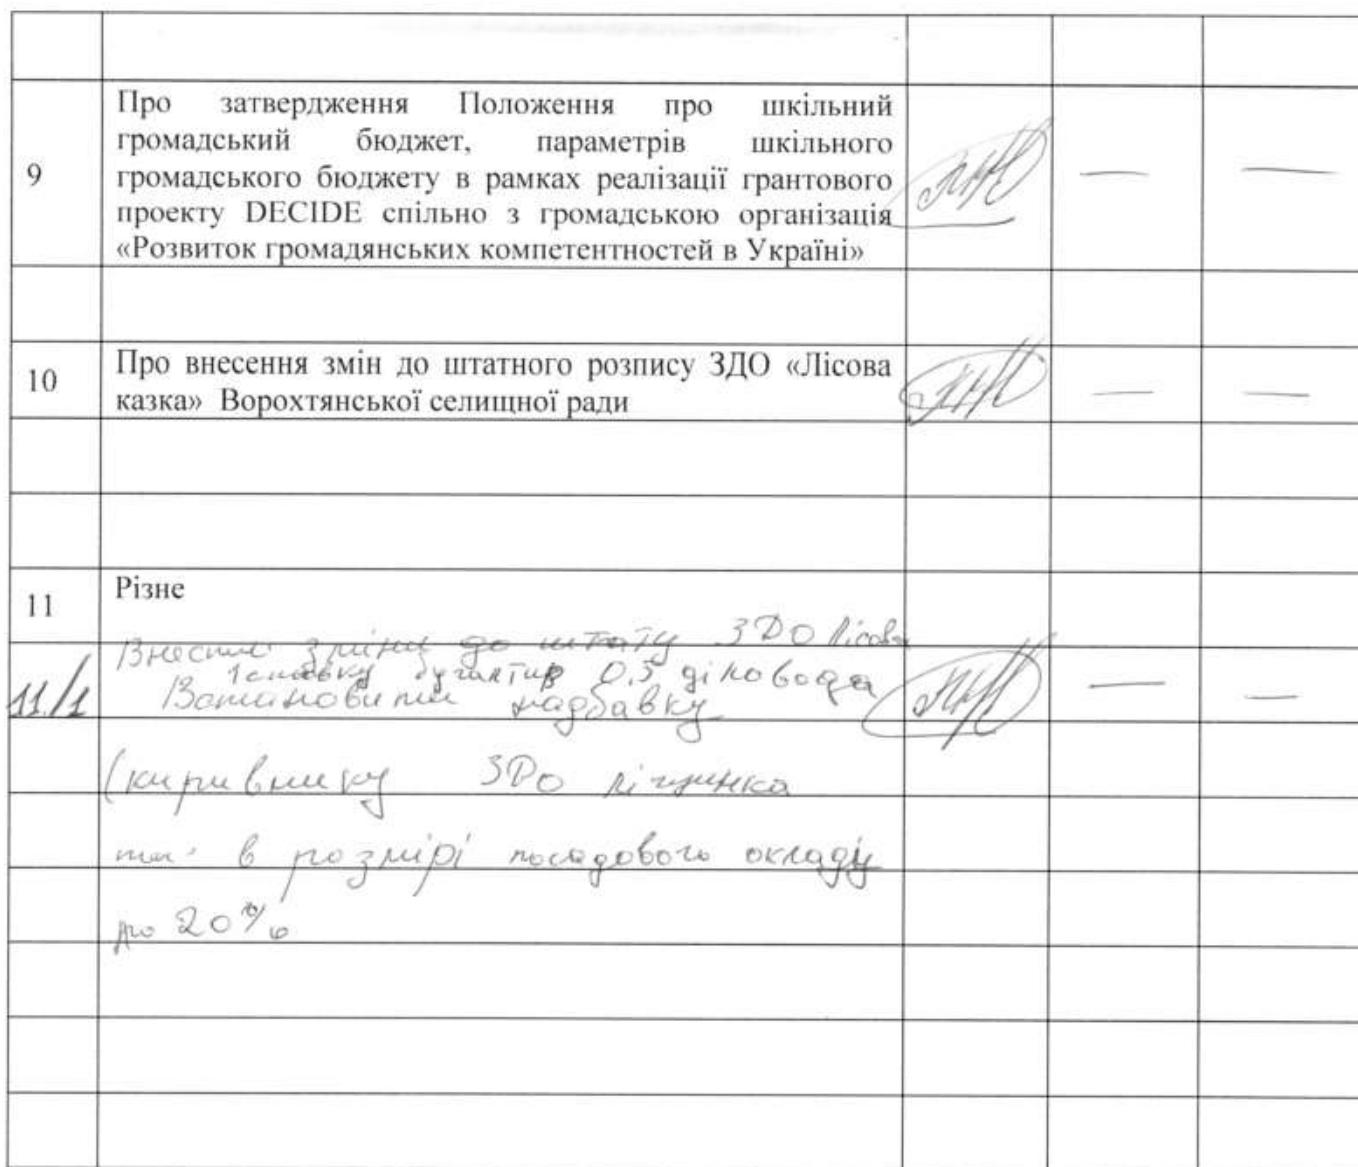 9
Про затвердження Положення про шкільний
громадський бюджет, параметрів шкільного
громадського бюджету в рамках реалізації грантового
проекту DECIDE спільно з громадською організація
«Розвиток громадянських компетентностей в Україні»
— —
10
Про внесення змін до штатного розпису ЗДО «Лісова
казка» Ворохтянської селищної ради
— —
11
Різне
Внести зміни до штату ЗДО Лісова
1 ставку бугалтер 0.5 діловода
11/1
Встановити надбавку
— —
(керівнику ЗДО
в розмірі посадового окладу
до 20%